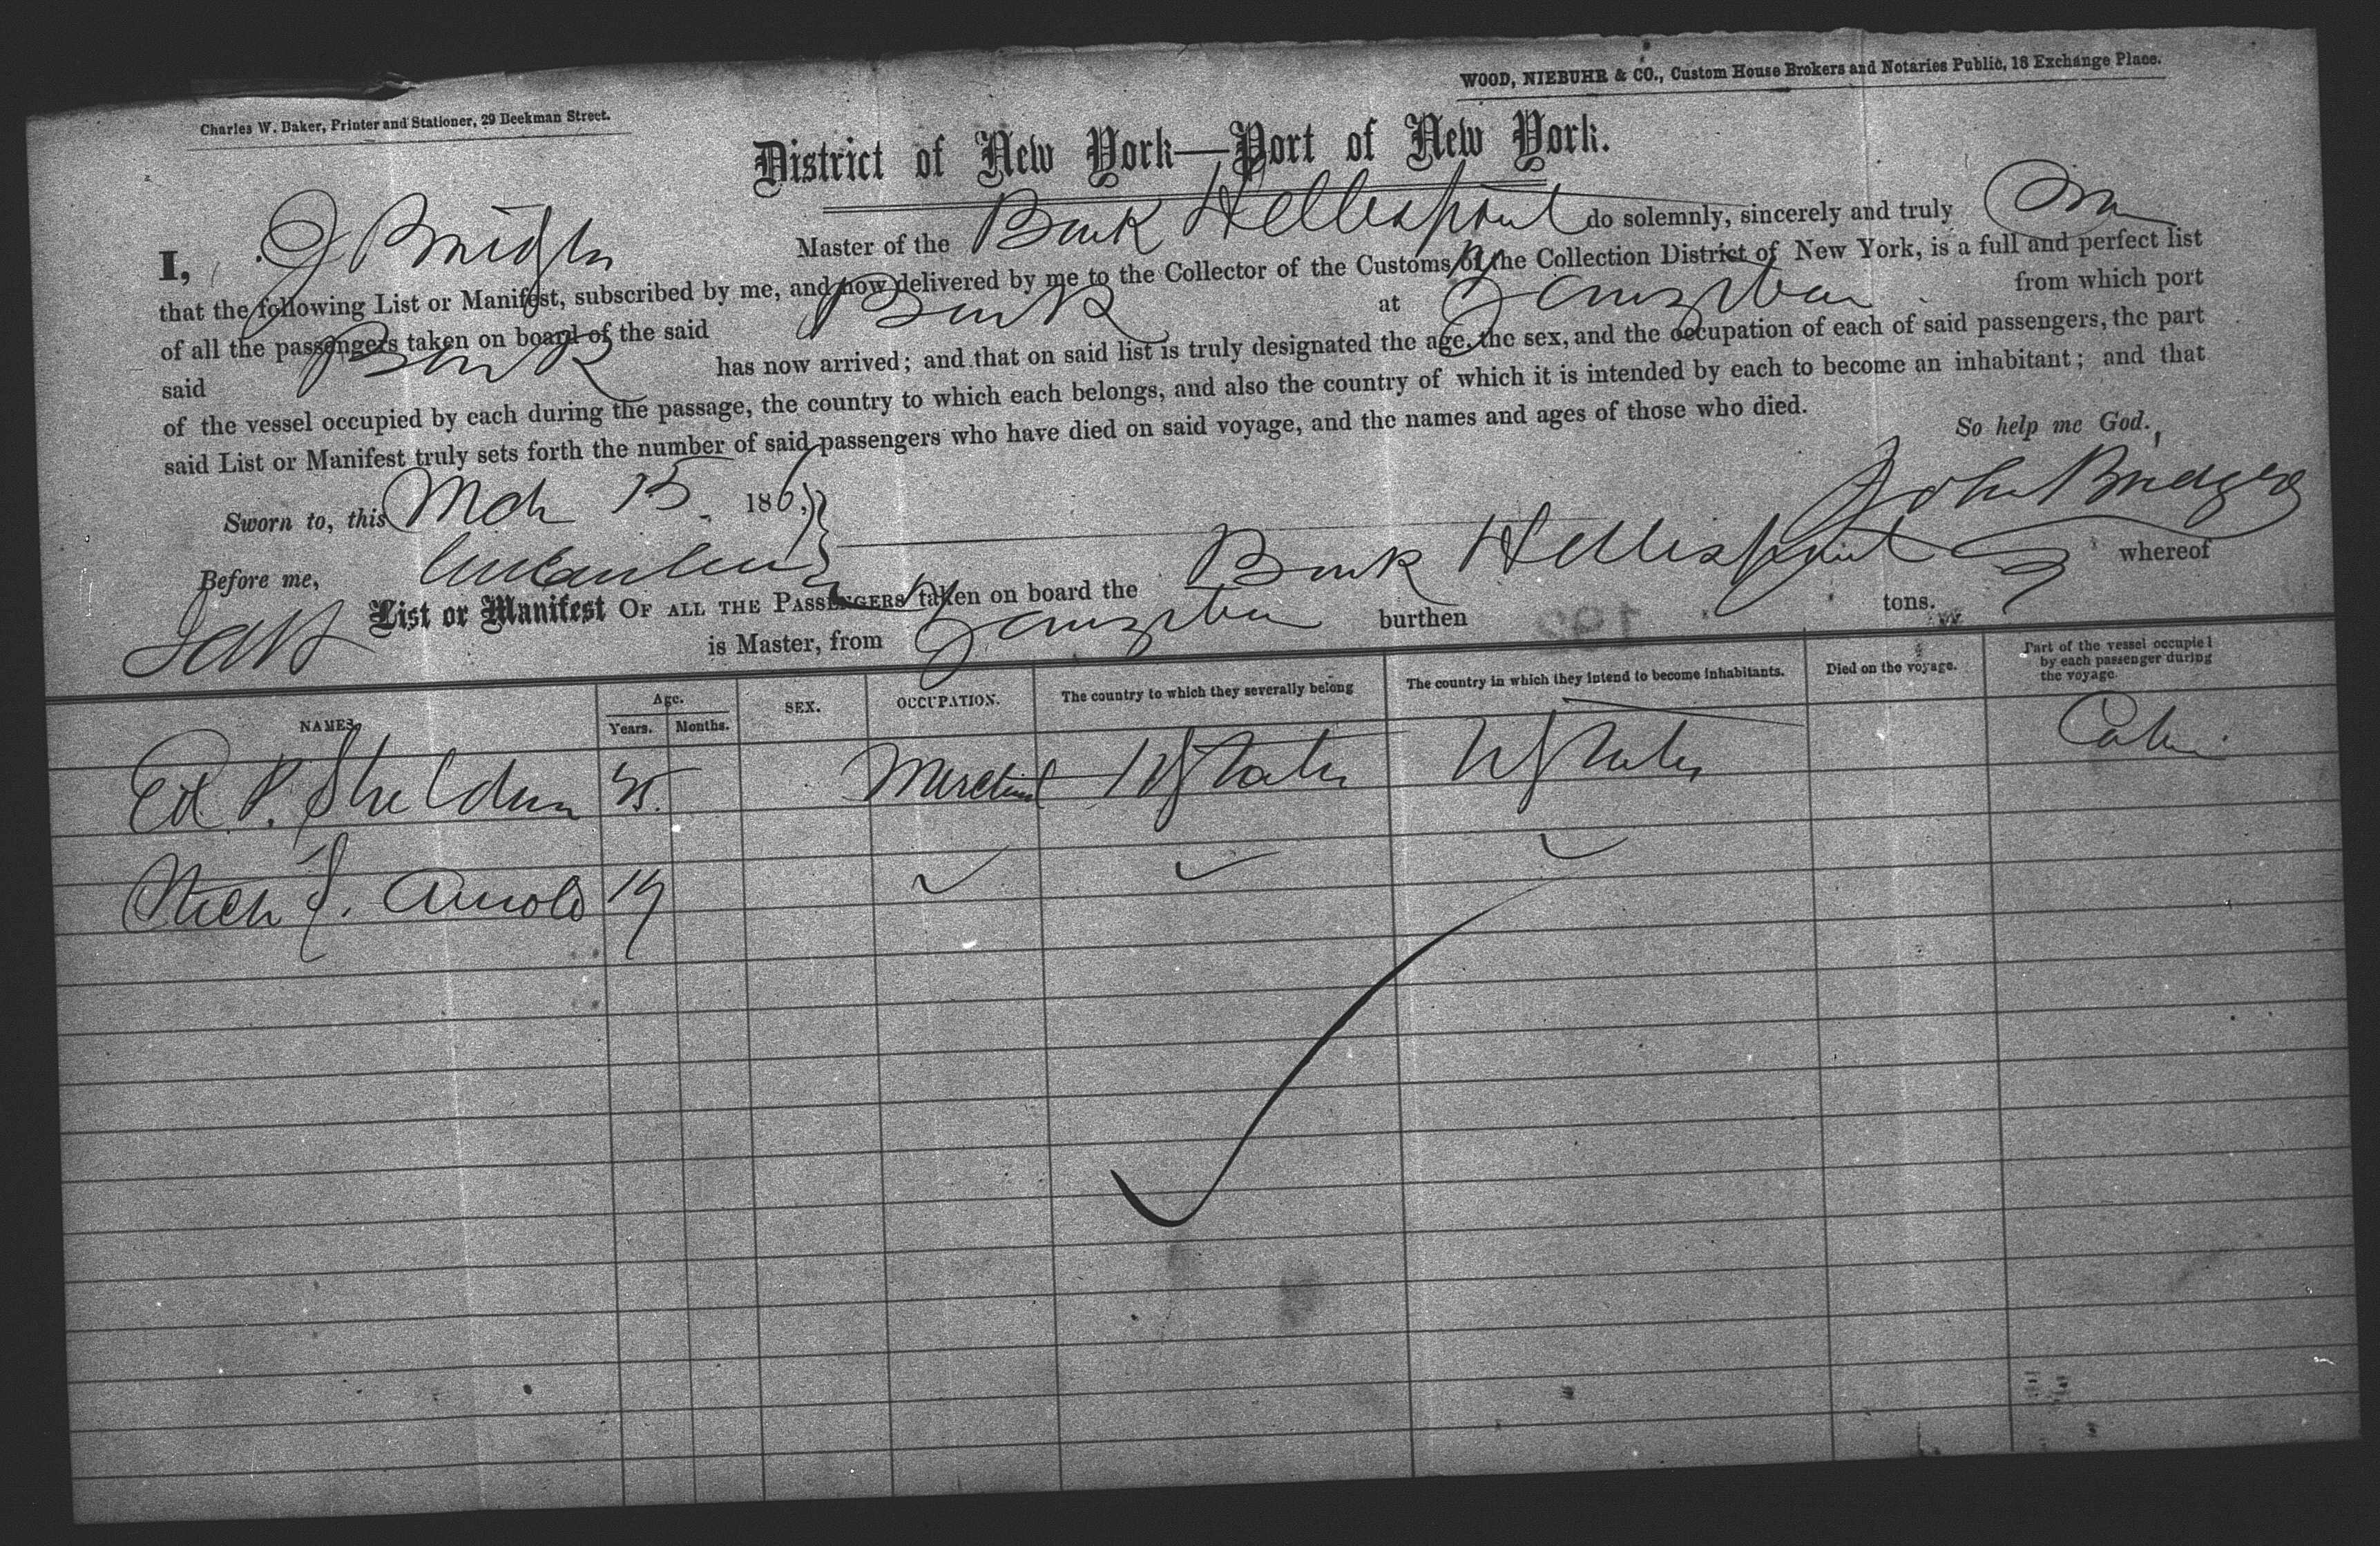 Charles W. Baker, Printer and Stationer, 29 Beekman Street.
WOOD, NIEBUHR & CO., Custom House Brokers and Notaries Public, 18 Exchange Place.
District of New York—Port of New York.
I, J Master of the Bark Hellespont do solemnly, sincerely and truly
that the following List or Manifest, subscribed by me, and now delivered by me to the Collector of the Customs of the Collection District of New York, is a full and perfect list
of all the passengers taken on board of the said Bark at Zanzibar from which port
said Bark has now arrived; and that on said list is truly designated the age, the sex, and the occupation of each of said passengers, the part
of the vessel occupied by each during the passage, the country to which each belongs, and also the country of which it is intended by each to become an inhabitant; and that
said List or Manifest truly sets forth the number of said passengers who have died on said voyage, and the names and ages of those who died.
So help me God.
Sworn to, this Mch 15 186 John Bridges
Before me,
List or Manifest OF ALL THE PASSENGERS taken on board the Bark Hellespont whereof
is Master, from Zanzibar burthen tons.
NAMES. Age. Years. Months. SEX. OCCUPATION. The country to which they severally belong The country in which they intend to become inhabitants. Died on the voyage. Part of the vessel occupied by each passenger during the voyage
Ed P. Sheldon Merchant U States U States Cabin
Arnold 19 ✓ ✓ ✓